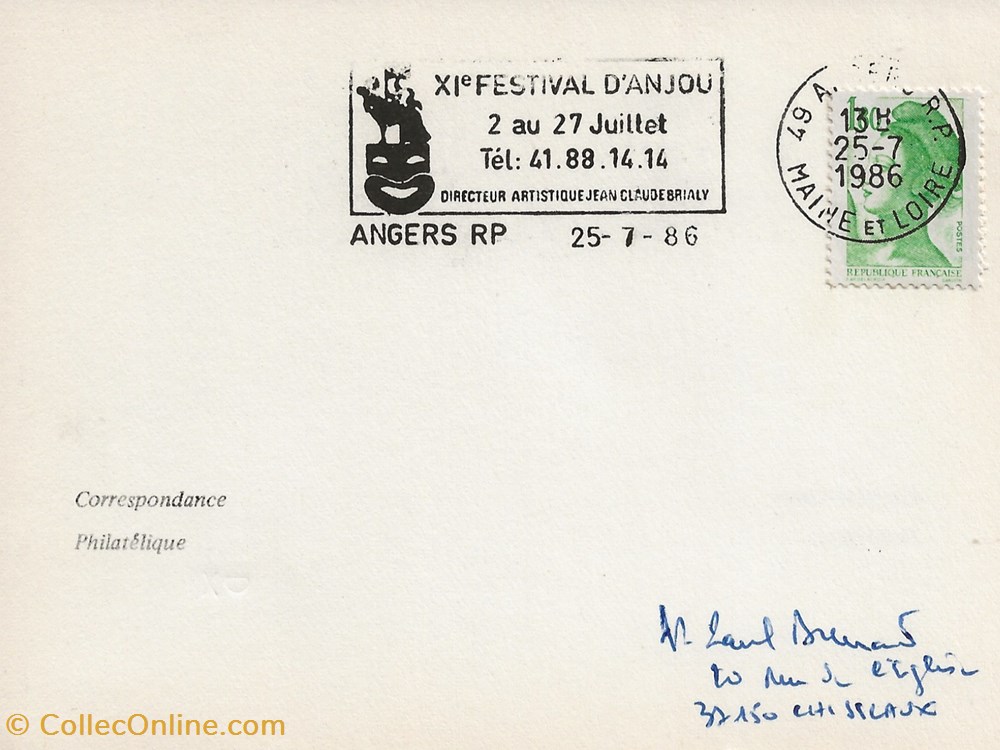 XIe FESTIVAL D'ANJOU
2 au 27 Juillet
Tél: 41.88.14.14
DIRECTEUR ARTISTIQUE JEAN CLAUDE BRIALY
ANGERS RP 25-7-86
49 R.P.
13H
25-7
1986
MAINE ET LOIRE
POSTES
REPUBLIQUE FRANÇAISE
Correspondance
Philatélique
Mr Paul
20 Rue de l'Eglise
37150 CHISSEAUX
© CollecOnline.com